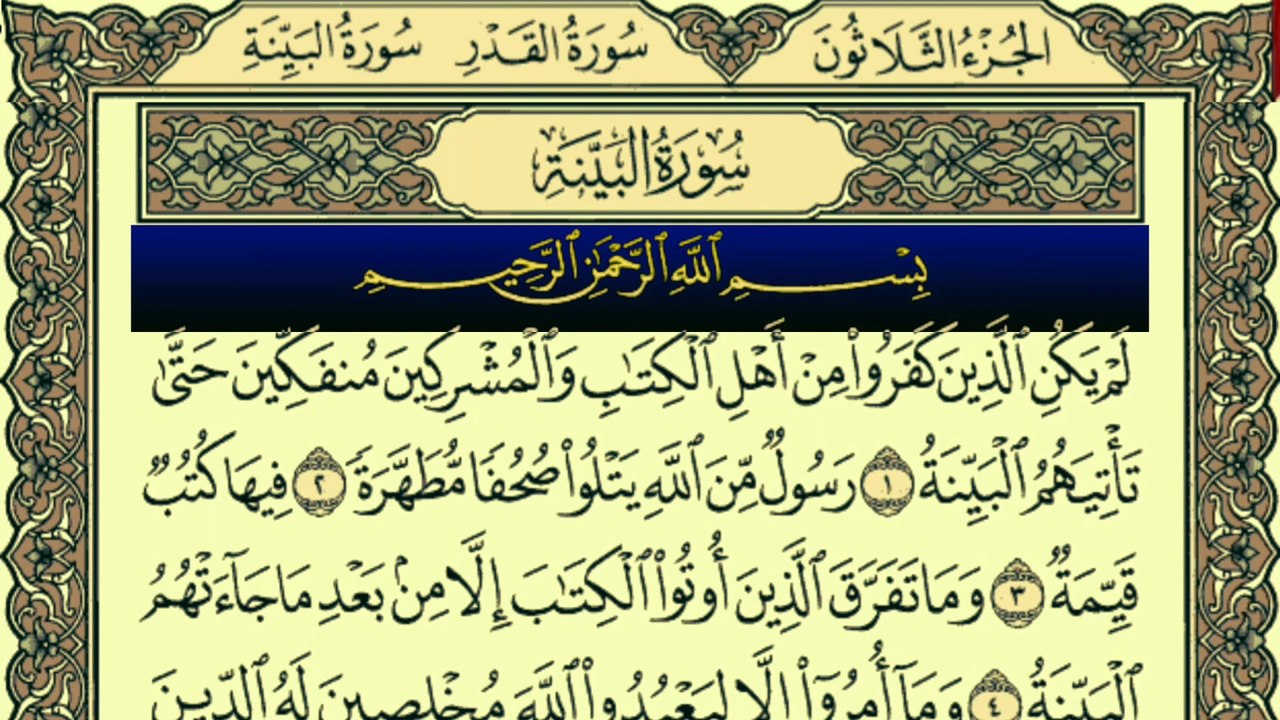 الجُزْءُ الثَّلَاثُونَ سُورَةُ القَدْرِ سُورَةُ البَيِّنَةِ
سُورَةُ البَيِّنَةِ
بِسْمِ ٱللَّهِ ٱلرَّحْمَٰنِ ٱلرَّحِيمِ
لَمْ يَكُنِ ٱلَّذِينَ كَفَرُوا۟ مِنْ أَهْلِ ٱلْكِتَٰبِ وَٱلْمُشْرِكِينَ مُنفَكِّينَ حَتَّىٰ
تَأْتِيَهُمُ ٱلْبَيِّنَةُ ١ رَسُولٌ مِّنَ ٱللَّهِ يَتْلُوا۟ صُحُفًا مُّطَهَّرَةً ٢ فِيهَا كُتُبٌ
قَيِّمَةٌ ٣ وَمَا تَفَرَّقَ ٱلَّذِينَ أُوتُوا۟ ٱلْكِتَٰبَ إِلَّا مِنۢ بَعْدِ مَا جَآءَتْهُمُ
ٱلْبَيِّنَةُ ٤ وَمَآ أُمِرُوٓا۟ إِلَّا لِيَعْبُدُوا۟ ٱللَّهَ مُخْلِصِينَ لَهُ ٱلدِّينَ